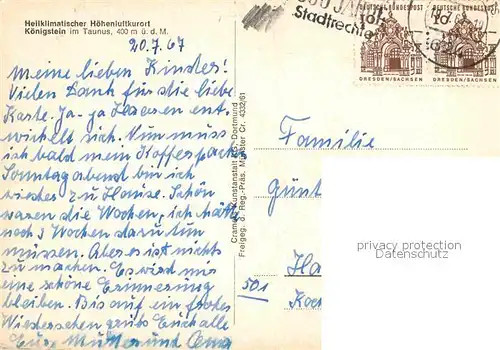 Heilklimatischer Höhenluftkurort
Königstein im Taunus, 400 m ü. d. M.
20.7.67
Meine lieben Kinder!
Vielen Dank für die liebe
Karte. Ja-ja Haesen ent
wickelt sich. Nun muss
ich bald mein Koffer packen
Sonntag abend bin ich
wieder zu Hause. Schön
waren die Wochen, ich hätt
noch 3 Wochen dazu tun
müssen. Aber es ist nichts
zu machen. Es wird uns
eine schöne Erinnerung
bleiben. Bis auf ein frohes
Wiedersehen grüß Euch alle
Eure Mutter und Oma
Cramers Kunstanstalt KG, Dortmund
Freigeg. d. Reg.-Präs. Münster Cr. 4332/61
Stadtrechte
DEUTSCHE BUNDESPOST
DEUTSCHE BUNDESPOST
DRESDEN/SACHSEN
DRESDEN/SACHSEN
Familie
Günt
privacy protection
Datenschutz
Ha
501